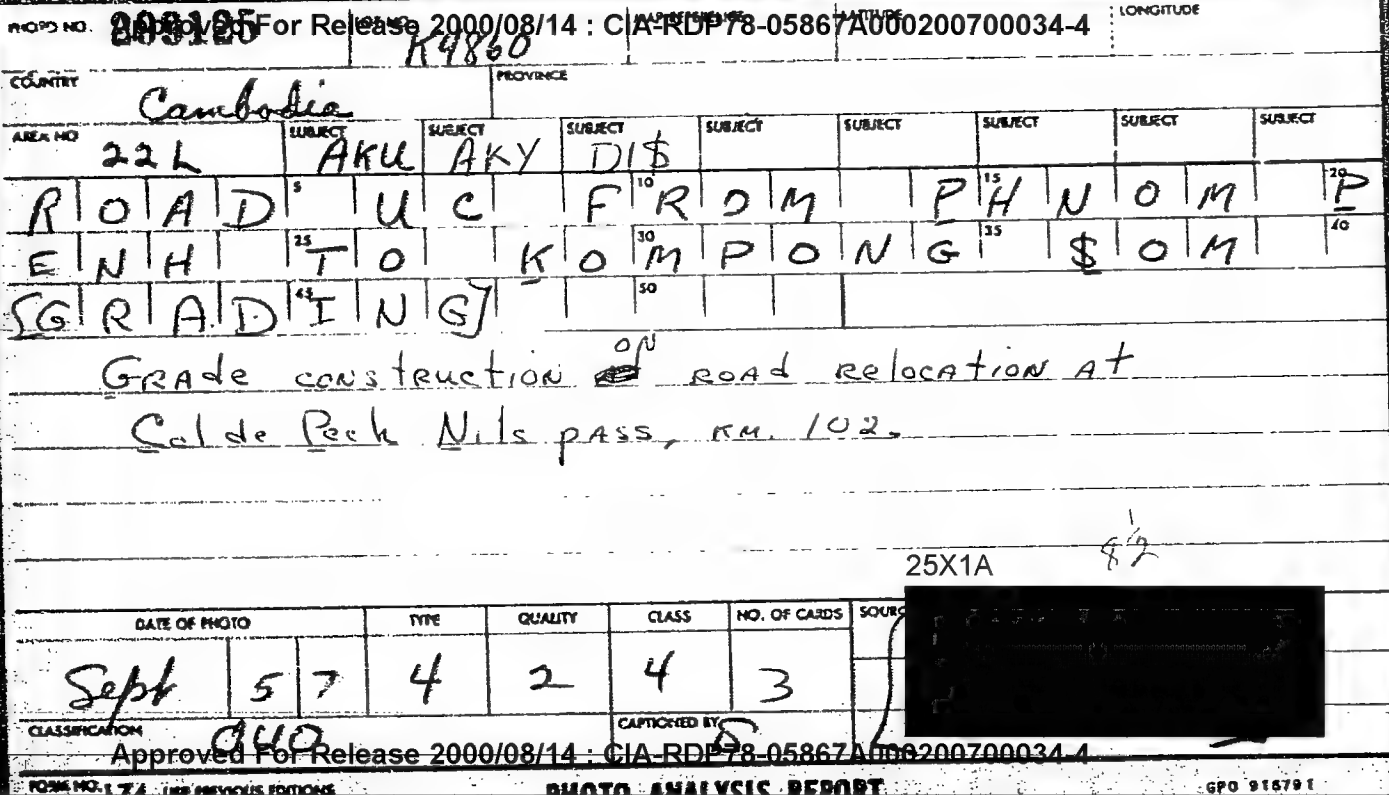 PHOTO NO. Approved For Release 2000/08/14 : CIA-RDP78-05867A000200700034-4 LONGITUDE
K4860
COUNTRY Cambodia PROVINCE
AREA NO 22L SUBJECT AKU SUBJECT AKY SUBJECT DI$ SUBJECT SUBJECT SUBJECT SUBJECT SUBJECT
5 10 15 20
ROAD UC FROM PHNOM P
25 30 35 40
ENH TO KOMPONG $OM
45 50
[GRADING]
GRAde construction ON ROAD Relocation At
Col de Peck Nils pASS, KM. 102.
8 1/2
25X1A
DATE OF PHOTO TYPE QUALITY CLASS NO. OF CARDS
Sept 5 7 4 2 4 3
CLASSIFICATION OUO CAPTIONED BY
Approved For Release 2000/08/14 : CIA-RDP78-05867A000200700034-4
FORM NO. USE PREVIOUS EDITIONS PHOTO ANALYSIS REPORT GPO 916791